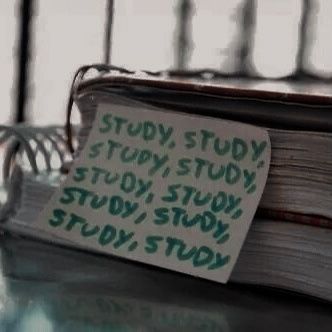 STUDY, STUDY,
STUDY, STUDY,
STUDY, STUDY,
STUDY, STUDY,
STUDY, STUDY